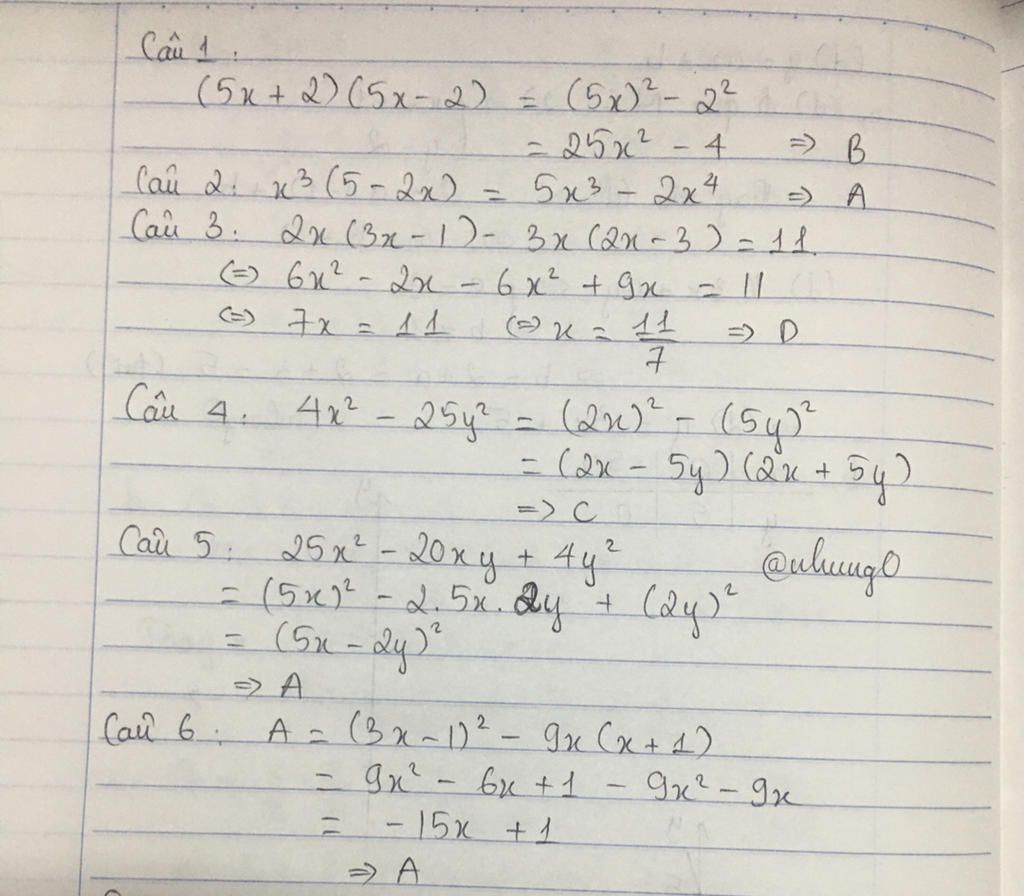 Câu 1:
(5x + 2)(5x - 2) = (5x)² - 2²
= 25x² - 4 => B
Câu 2: x³(5 - 2x) = 5x³ - 2x⁴ => A
Câu 3: 2x(3x - 1) - 3x(2x - 3) = 11
(=) 6x² - 2x - 6x² + 9x = 11
(=) 7x = 11 (=) x = 11/7 => D
Câu 4: 4x² - 25y² = (2x)² - (5y)²
= (2x - 5y)(2x + 5y)
=> C
Câu 5: 25x² - 20xy + 4y²
@nhung0
= (5x)² - 2.5x.2y + (2y)²
= (5x - 2y)²
=> A
Câu 6: A = (3x - 1)² - 9x(x + 1)
= 9x² - 6x + 1 - 9x² - 9x
= -15x + 1
=> A